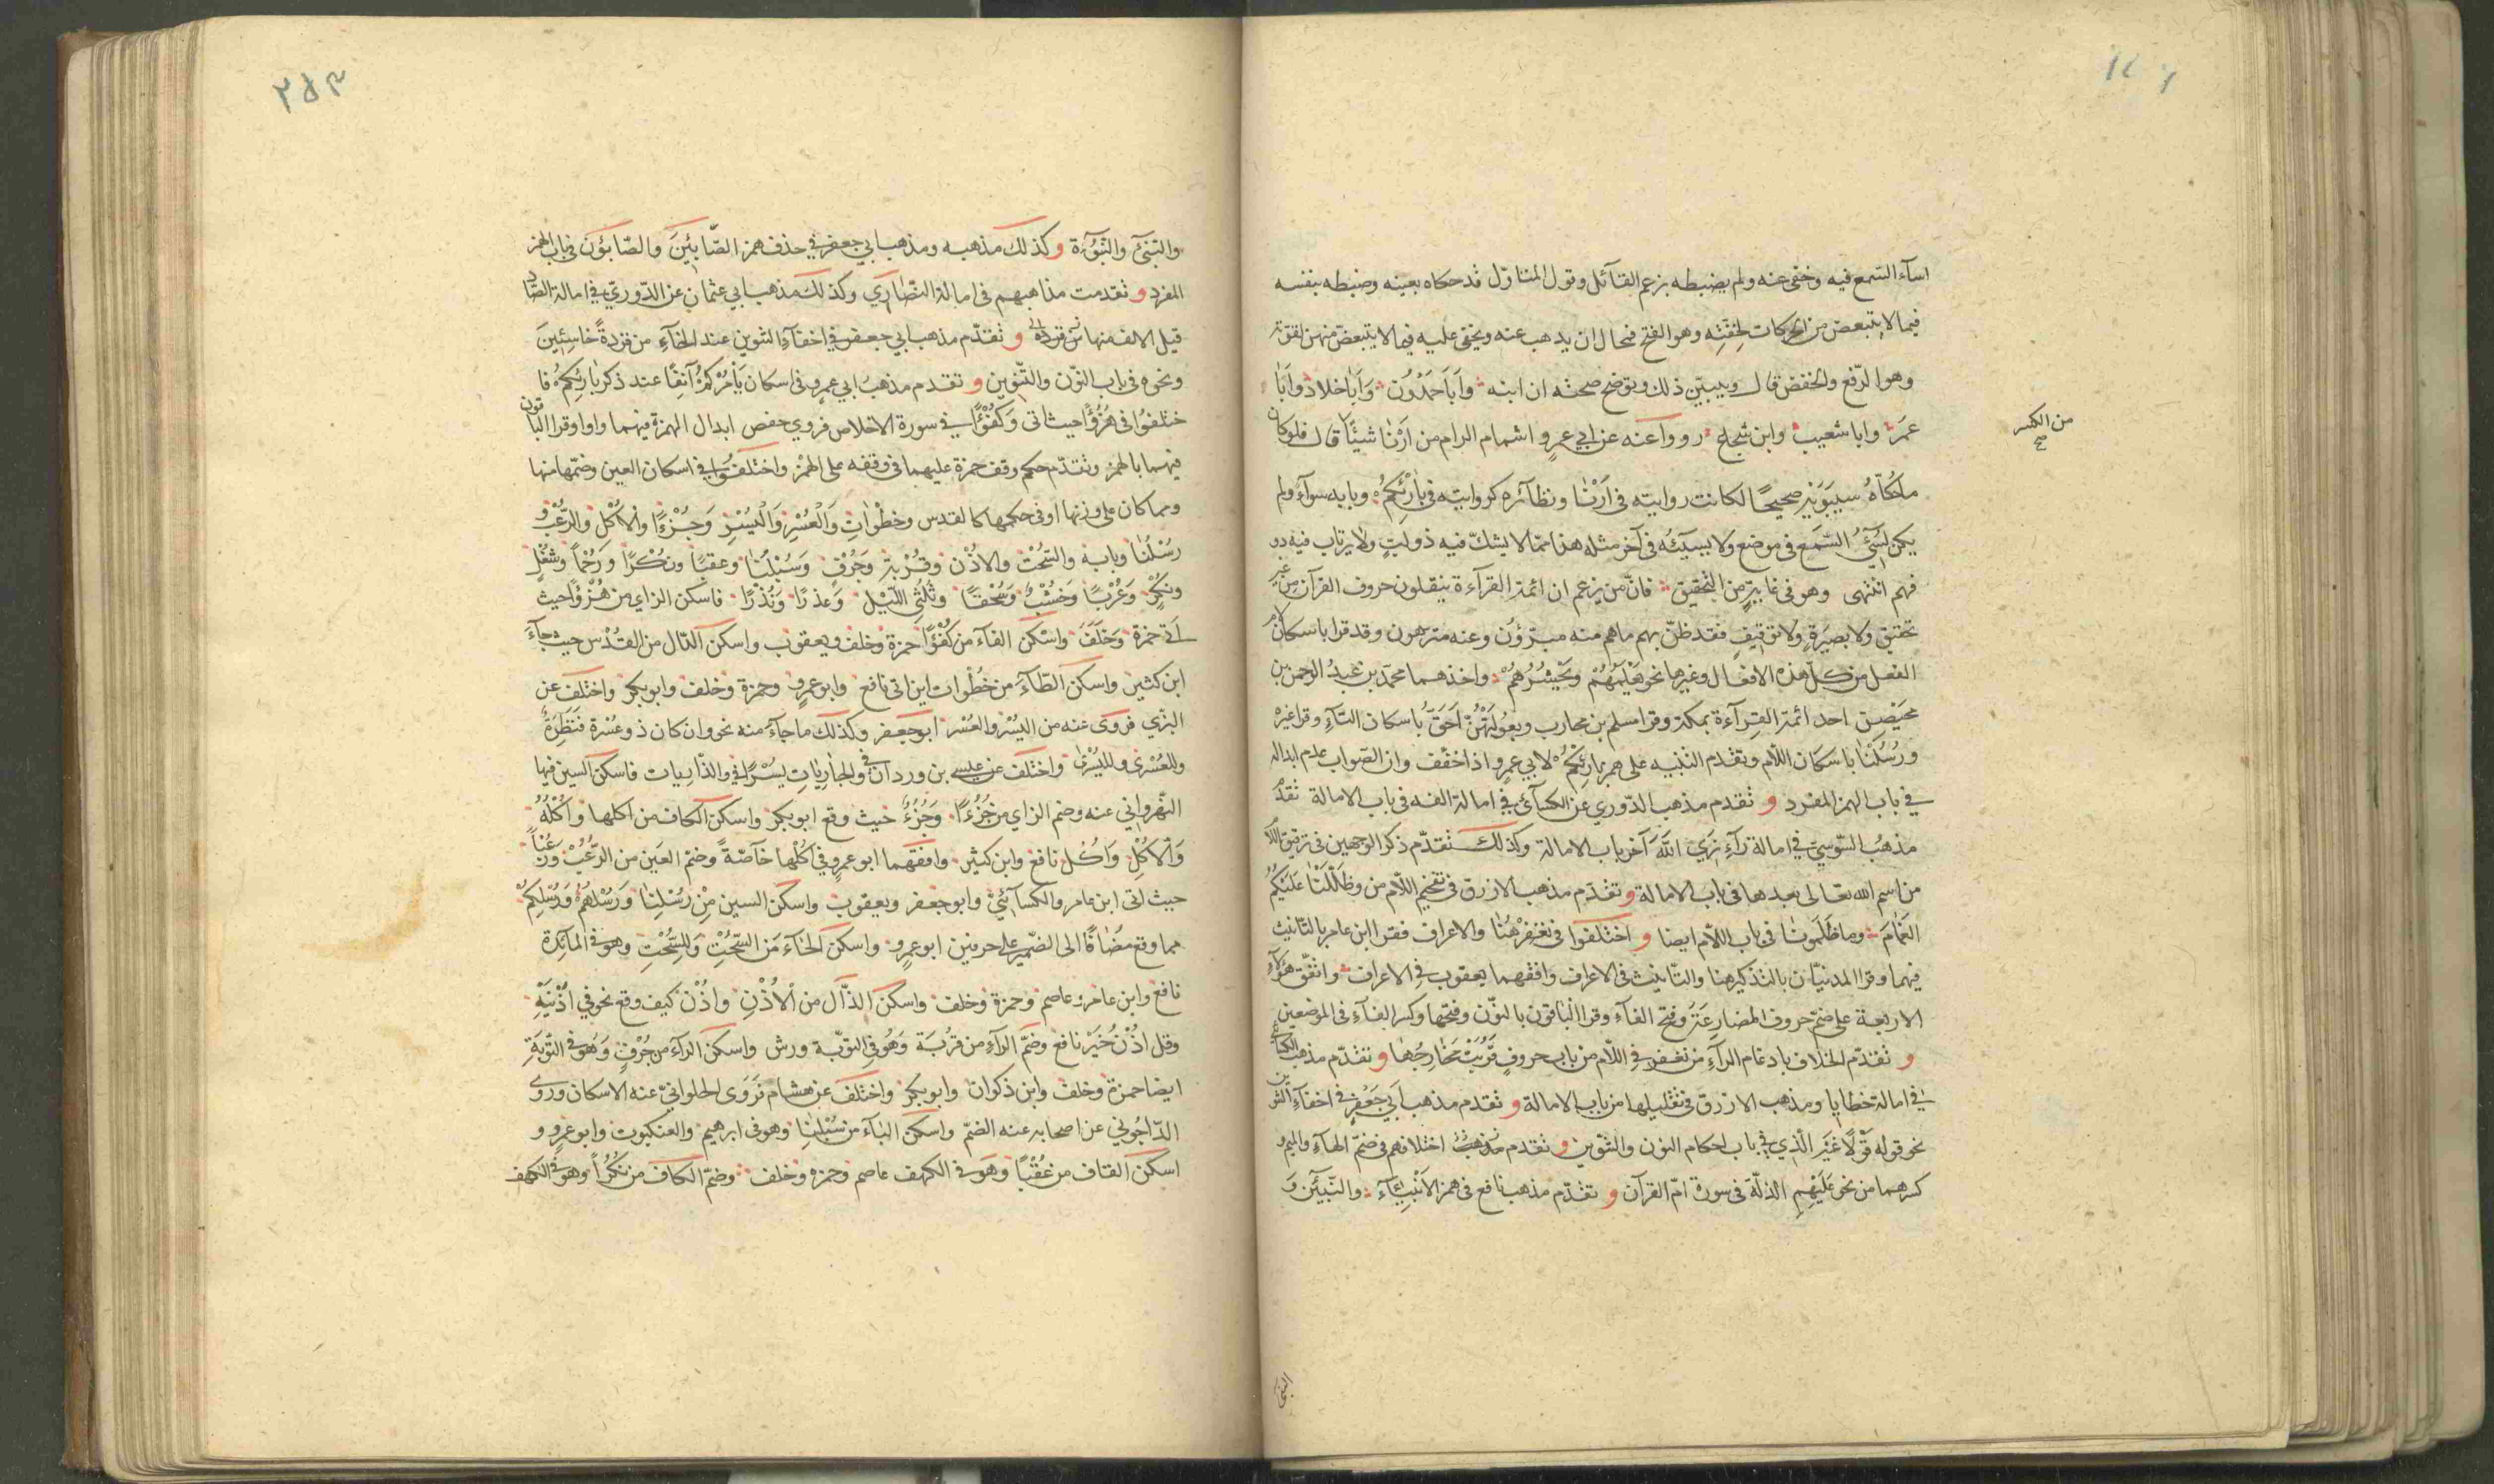 اسآء السّمع فيه وخفى عنه ولم يضبطه بزعم القآئل وقول المتاوّل قد حكاه بعينه وضبطه بنفسه
فيما لا يتبعض من الحركات لخفّتِه وهو الفتح فمحال ان يذهب عنه ويخفى عليه فيما لا يتبعض منهن لقوّته
وهو الرّفع والخفض قال ويبيّن ذلك ويوضح صحته ان ابنه وَاَبَا حَمْدُون وَاَبَا خلاد وَاَبَا
عمَر وابا شعيب وابن شجاع رووا عنه عن ابي عمرٍو اشمام الرام من اَرْنا شيئًا قال فلو كان
من الكسر صح
ما حكاهُ سيبَوَيْهِ صحيحًا لكانت روايته في اَرْنَا ونظآئره كروايته في بَارِئْكُمْ وبابه سوآء ولم
يكن يُسَيّءُ السّمع في موضع ولا يسيئه في آخر مثله هذا ممّا لا يشكّ فيه ذو لبٍ ولا يرتاب فيه ذو
فهم انتهى وهو في غايةٍ من التحقيق فانّ من يزعم ان ائمة القرآءة ينقلون حروف القرآن من غير
تحقيق ولا بصيرةٍ ولا توقيفٍ فقد ظنّ بهم ما هم منه مبرّؤن وعنه منزهون وقد قرا باسكان لام
الفعل من كلّ هذه الافعال وغيرها نحو يَعْلَمْهُمْ ويَحْشُرْهُمْ واخذهما محمّد بن عبدُ الرحمن بن
محيَصِن احد ائمة القِرآءة بمكة وقرا مسلم بن محارب وبعُولَتْهُنّ اَحَقّ باسكان التّآءِ وقرا غيره
ورُسُلْنَا باسكان اللّام وتقدّم التنبيه على همز بَارِئْكُمْ لابي عمرٍو اذا خفّف وان الصّواب عدم ابداله
في باب الهمز المفرد و تقدم مذهب الدّوري عن الكسآئي في امالة الفه في باب الامالة تقدّم
مذهبُ السّوسي في امالة رآءِ نرَي اللَّهَ آخر باب الامالة وكذلك تقدّم ذكر الوجهين في ترقيق اللّام
من اسم الله تعَالى بعدها في باب الامالة و تقدّم مذهب الازرق في تفخيم اللّام من وظَلّلْنَا عَلَيْكُمُ
الغَمَامَ وما ظَلَمونَا في باب اللّام ايضا و اختلفوا في نَغفِرْ هُنَا والاعراف فقرا ابن عامر بالتّانيث
فيهما وقرا المدنيّان بالتذكير هنا والتّانيث في الاعراف وافقهما يعقوب في الاعراف واتّفق هؤلآءِ
الاربعة على ضمّ حروف المضارعَةِ وفتح الفآء وقرا البَاقون بالنّون وفتحها وكسر الفآء في الموضعين
و تقدّم الخلاف بادغام الرآءِ من نغفر في اللّام من باب حروفٍ قَرُبَتْ مَخَارِجُهَا و تقدّم مذهب الكسائي
في امالة خطايا ومذهب الازرق في تقليلها من باب الامالة و تقدم مذهب ابي جَعْفرٍ في اخفآءِ التنوين
نحو قوله قَوْلًا غَيْرَ الّذي في باب احكام النون والتنوين و تقدم اختلافهم في ضمّ الهآءِ والميم و
كسرهما من نحو عَلَيْهِمِ الذلّة في سورة امّ القرآن و تقدّم مذهب نافع في همز الاَنْبِئآء والنّبِيّئن وَ
النبئ
٢٥٣
والنّبئ والنّبُوَّة و كذلك مذهبه ومذهب ابي جعفر في حذف همز الصَّابِئينَ والصّابؤُن في باب الهمز
المفرد و تقدمت مذاهبهم في امالة النّصَارَي وكذلك مذهب ابي عثمان عن الدّوريّ في امالة الصّاد
قبل الالف منها و تقدّم مذهب ابي جعفر في اخفآءِ التنوين عند الخآءِ من قردةً خاسِئِينَ
ونحوه في باب النّون والتّنوين و تقدم مذهبُ ابي عمرٍو في اسكان يَأمُرْكُمْ آنفًا عند ذكر بَارِئِكُمْ فا
ختلفوُا في هُزُؤًا حيث اتى وَكُفُؤًا في سورة الاخلاص فروي حفص ابدال الهمزة فيهما واوا وقرا الباقون
فيهما بالهمز وتقدّم حكم وقف حمزة عليهما في وقفه على الهمْز واختلفوُا في اسكان العين وضمّها منها
ومما كان على وزنها او في حكمها كالقدس وخطْوَاتِ وَالْعُسْرِ وَالْيُسْرِ وَجُزْءًا وَالاُكْلِ والرُّعْبِ و
رُسْلُنَا وبابه والسّحْت والاذْن وقرْبة وَجُرْفٍ وَسُبْلُنَا وعقبًا ونكْرًا ورَحْمًا وشغْلٍ
ونكْرٍ وَعُرْبًا وَخشْبٌ وَسُحْقًا وثُلْثي اللّيْل وَعذرًا وَنُذْرًا فاسكن الزاي من هُزْؤًا حيث
اَتى حمزة وَخَلَف واسْكَن الفآء من كُفْؤًا حمزة وخلف ويعقوب واسكن الدّال من القُدْس حيث جآءَ
ابن كثير واسكن الطّآءَ من خُطْوات اين اتى نافع وابو عمرٍو وحمزة وخلف وابو بكر واختلف عن
البزّي فروى عنه من اليُسْر والعُسْر ابو جعفر وكذلك ما جآءَ منه نحو وان كان ذو عُسْرة فَنَظِرَةٌ
وللعُسْرى ولليُسْرى واختلف عن عيسى بن وردان في والجاريَاتِ يسْرًا في والذّاريات فاسكن السين فيها
النّهرواني عنه وضم الزاي من جُزُءًا وَجُزُءٌ حيث وقع ابو بكر واسكن الكاف من اكلها واُكْلُهُ
وَالاُكْلِ وَاُكْل نافع وابن كثير وافقهما ابو عمرٍو في اُكْلها خآصّةً وضمّ العَين من الرّعُبْ وَرُعُبًا
حيث اتى ابن عامر والكسآئيّ وابو جعفر ويعقوب واسكن السين مِنْ رُسْلِنَا وَرُسْلهُمْ وَرُسْلِكمْ
مما وقع مُضَافًا الى الضّمير على حرفين ابو عمرٍو واسكن الحآءَ مَن السّحْتِ وَللسُّحْتِ وهو في المآئدة
نافع وابن عامر وعاصم وحمزة وخلف واسكن الذّال من الاُذْنِ واذْن كيف وقع نحو في اُذْنَيْهِ
وقل اذْن خَيْر نافع وَضمّ الرآءِ من قربُة وَهُوَ في التوبّة ورش واسكن الرآءَ من جُرْفٍ وَهُوَ في التّوبَةِ
ايضا حمزة وخلف وابن ذكوان وابو بكر واختلف عن هشام فرَوى الحلوانيّ عنه الاسكان وروى
الدّاجُوني عن اصحابه عنه الضمّ واسكن البَآءَ من سُبْلَنا وهو في ابرهيم والعنكبوت وابو عمرٍو و
اسكن القاف من عُقْبًا وَهوَ في الكهف عاصم وحمزه وخلف وضمّ الكاف من نكُرًا وهو في الكهف